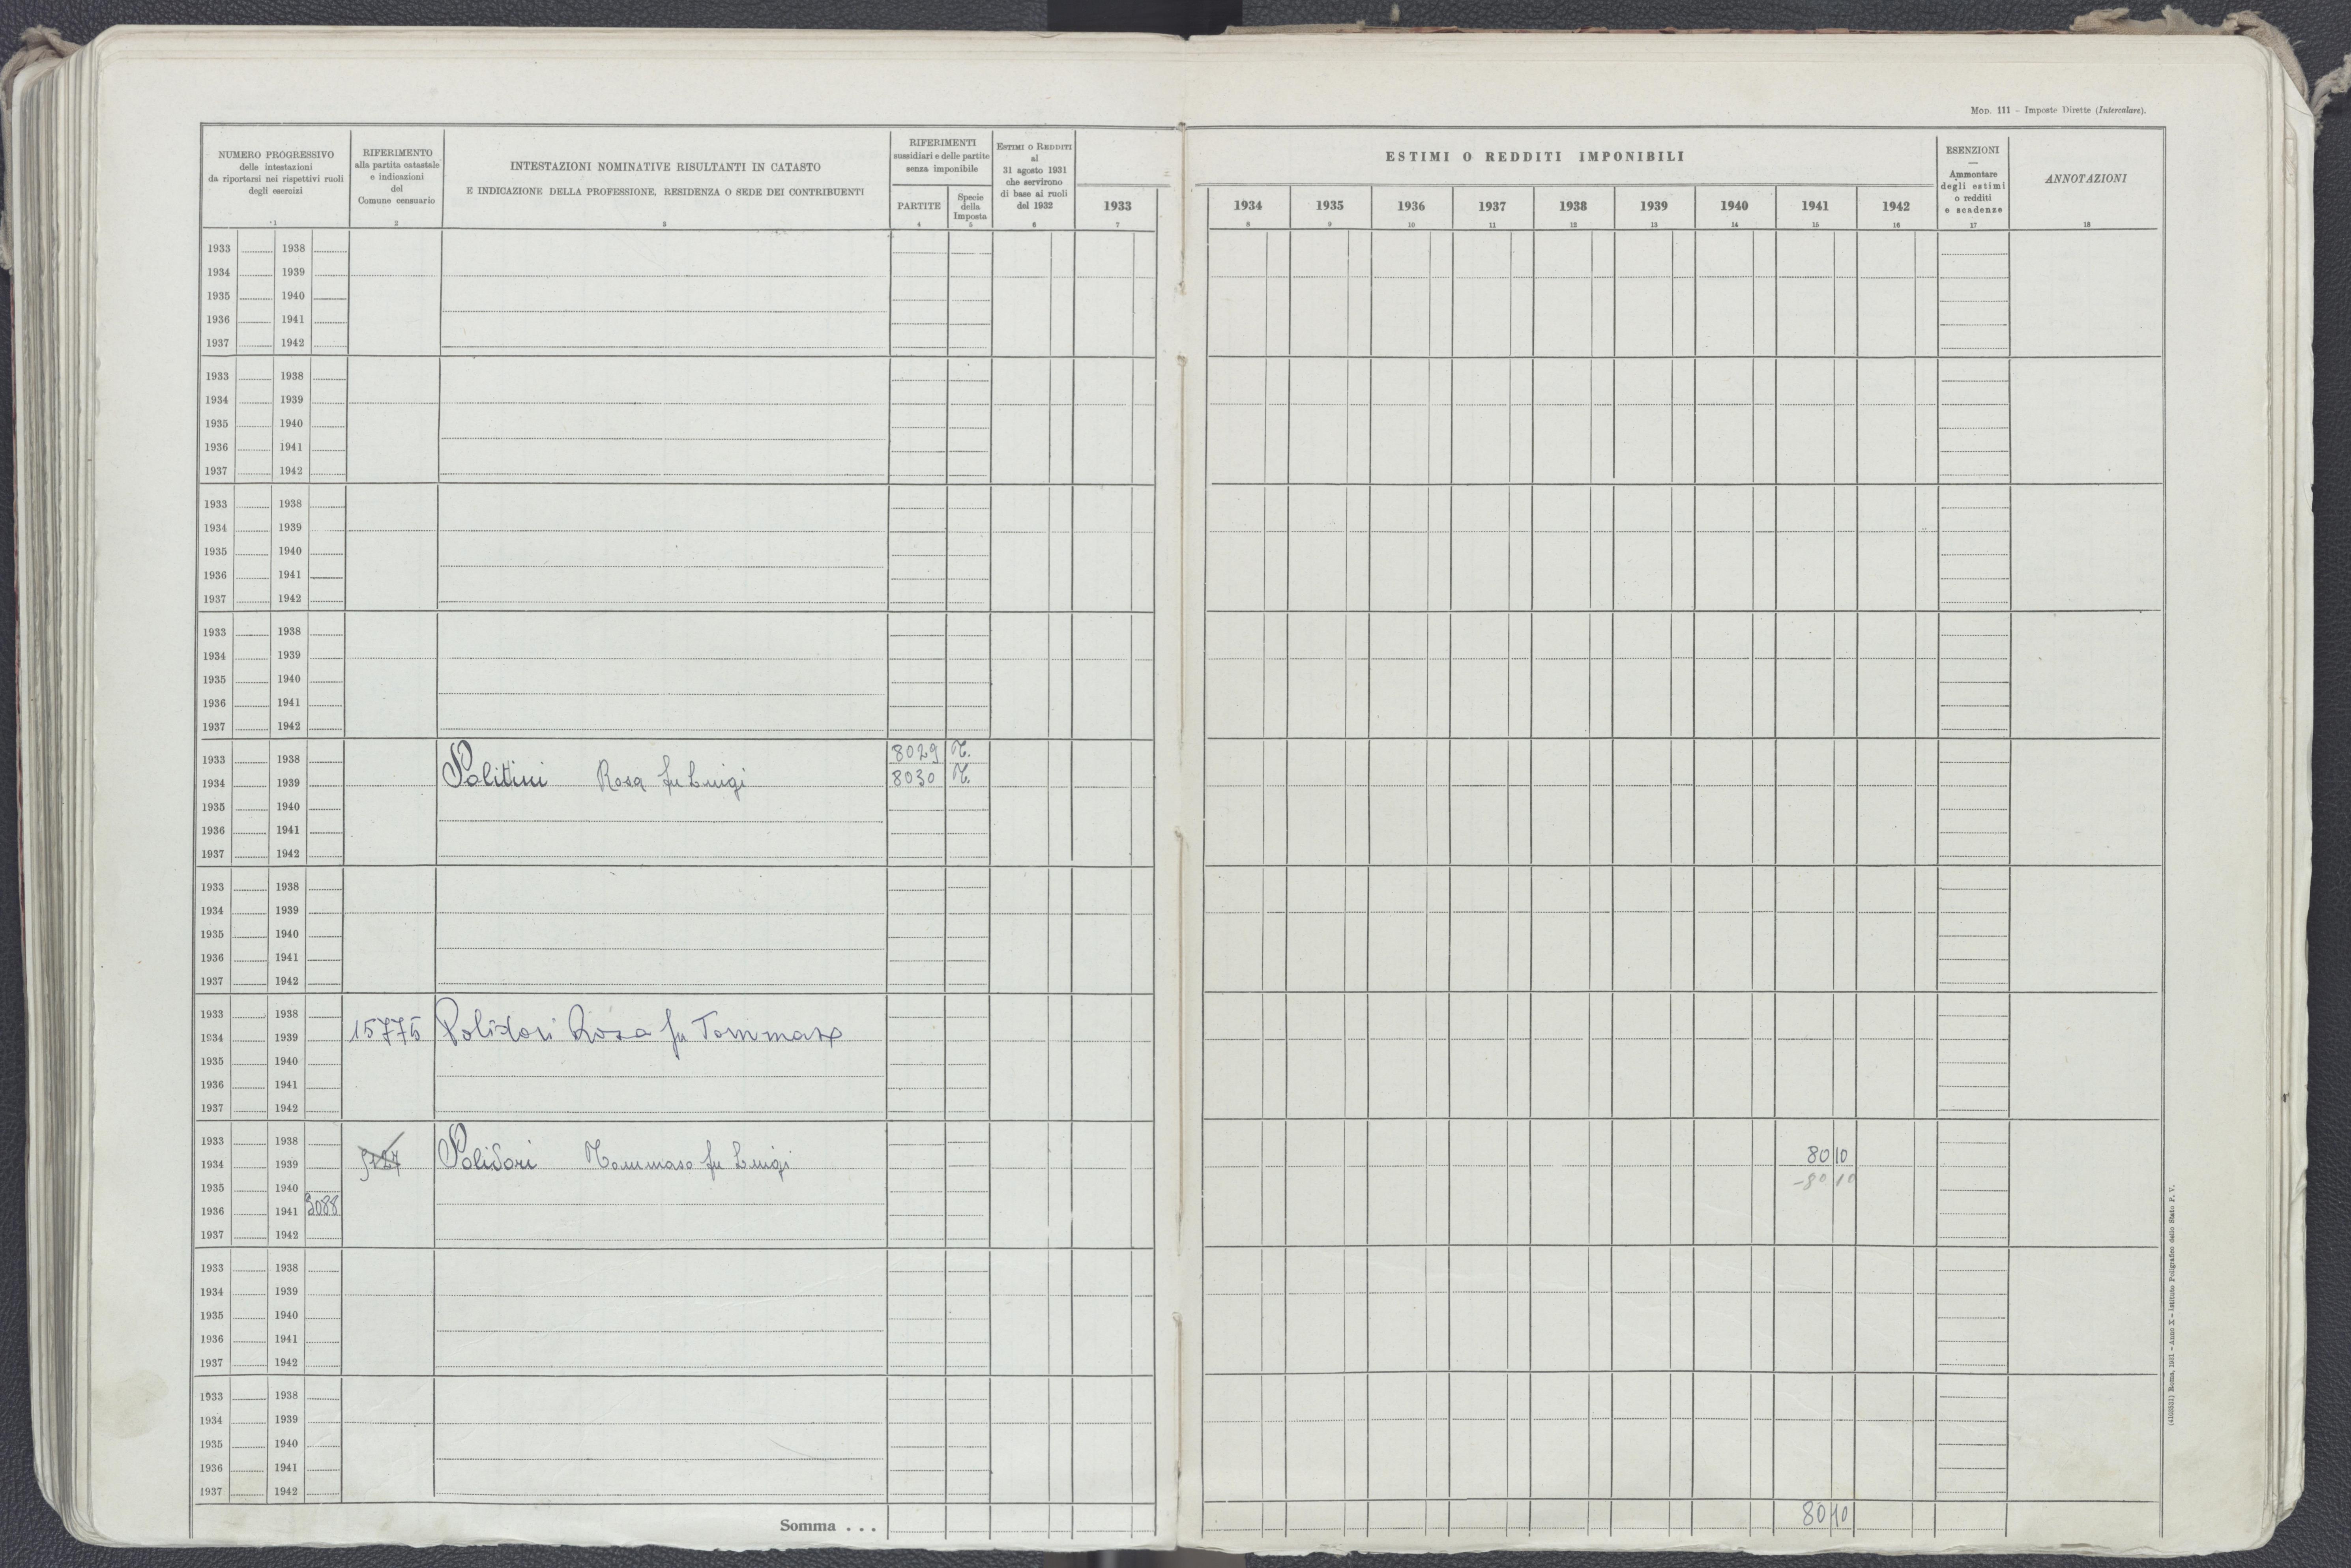 Mod. 111 - Imposte Dirette (Intercalare).
NUMERO PROGRESSIVO
delle intestazioni
da riportarsi nei rispettivi ruoli
degli esercizi
1
RIFERIMENTO
alla partita catastale
e indicazioni
del
Comune censuario
2
INTESTAZIONI NOMINATIVE RISULTANTI IN CATASTO
E INDICAZIONE DELLA PROFESSIONE, RESIDENZA O SEDE DEI CONTRIBUENTI
3
RIFERIMENTI
sussidiari e delle partite
senza imponibile
PARTITE
4
Specie
della
Imposta
5
ESTIMI O REDDITI
al
31 agosto 1931
che servirono
di base ai ruoli
del 1932
6
1933
7
ESTIMI O REDDITI IMPONIBILI
1934 1935 1936 1937 1938 1939 1940 1941 1942
8 9 10 11 12 13 14 15 16
ESENZIONI
—
Ammontare
degli estimi
o redditi
e scadenze
17
ANNOTAZIONI
18
1933 1938
1934 1939
1935 1940
1936 1941
1937 1942
1933 1938
1934 1939
1935 1940
1936 1941
1937 1942
1933 1938
1934 1939
1935 1940
1936 1941
1937 1942
1933 1938
1934 1939
1935 1940
1936 1941
1937 1942
1933 1938 8029 T.
1934 1939 Politini Rosa fu Luigi 8030 T.
1935 1940
1936 1941
1937 1942
1933 1938
1934 1939
1935 1940
1936 1941
1937 1942
1933 1938
1934 1939 15775 Polidori Rosa fu Tommaso
1935 1940
1936 1941
1937 1942
1933 1938
1934 1939 Polidori Tommaso fu Luigi 80 10
1935 1940 -80 10
1936 1941 3088
1937 1942
1933 1938
1934 1939
1935 1940
1936 1941
1937 1942
1933 1938
1934 1939
1935 1940
1936 1941
1937 1942
Somma . . . 80 10
Roma, 1931 - Anno X - Istituto Poligrafico dello Stato P. V.